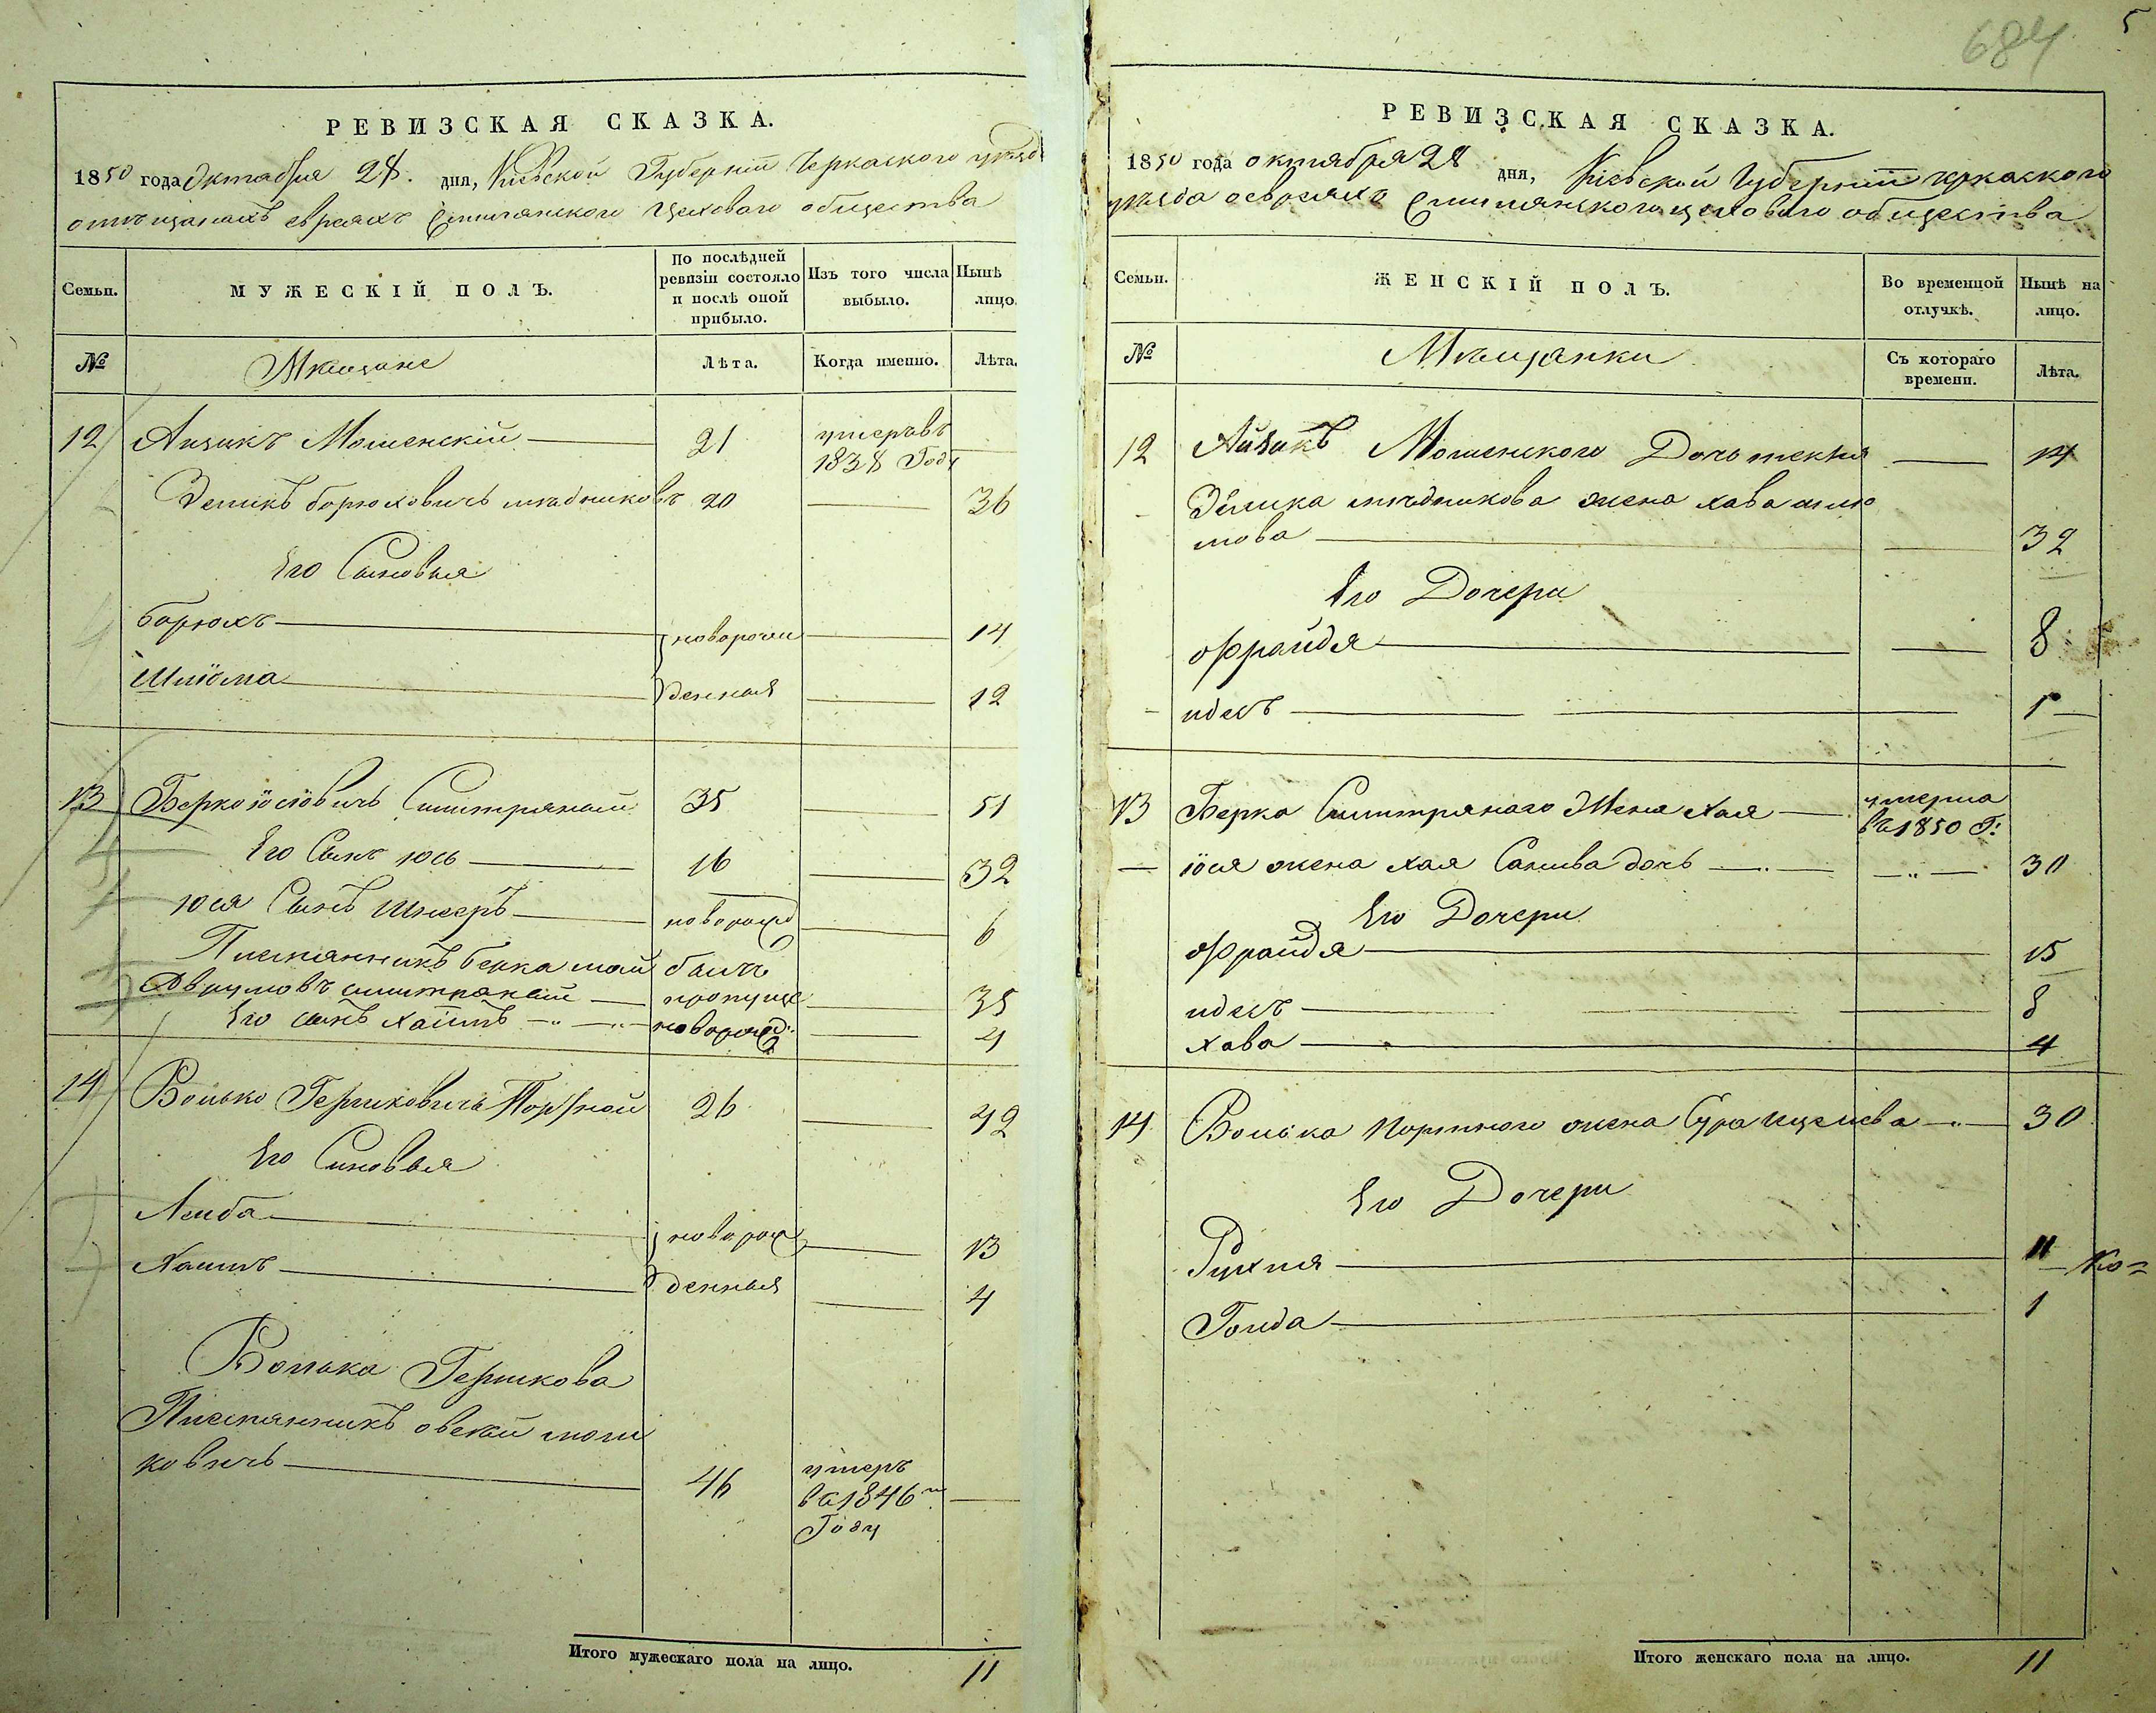 РЕВИЗСКАЯ СКАЗКА.
1850 года Октабря 28. дня, Кіевской Губерніи Черкаского уезда
о мѣщанахъ евреяхъ Смилянского Цеховаго общества
Семьи.
МУЖЕСКІЙ ПОЛЪ.
По послѣдней ревизіи состояло и послѣ оной прибыло.
Изъ того числа выбыло.
Нынѣ лицо.
№
Мѣщане
Лѣта.
Когда именно.
Лѣта.
12 Аизикъ Мошенскій 21 умеръ въ
1838 Году
Зеликъ борюховичь мѣдниковъ 20 36
Его Сыновья
борюхъ новорож 14
Шлиома денныя 12
13 Берко іосіовичь Смитряный 35 51
Его Сынъ юсь 16 32
юся Сынъ Шмеръ новорожд 6
Племянникъ берка мой былъ
Аврумовъ смитряный пропуще 35
Его сынъ хаимъ новорожд 4
14 Волько Гершковичь Портной 26 42
Его Синовья
Лейба новорож 13
Хаимъ денныя 4
Волька Гершкова
Племянникъ овсей мош
ковичь 46 умеръ
въ 1846м
Году
Итого мужескаго пола на лицо. 11
684
5
РЕВИЗСКАЯ СКАЗКА.
1850 года октября 28 дня, Кіевской Губерніи черкаского
уезда о евреяхъ Смилянского цеховаго общества
Семьи.
ЖЕНСКІЙ ПОЛЪ.
Во временной отлучкѣ.
Нынѣ на лицо.
№
Мѣщанки
Съ котораго времени.
Лѣта.
12 Айзикъ Мошенского Дочь 14
Зелика мѣдникова жена хава шлио
мова 32
Его Дочери
Фрайдя 8
идесъ 1
13 Берка Смитряного Жена Хая умерла
въ 1850 Г:
юся жена хая Сакива дочь 30
Его Дочери
Фрайдя 15
идесъ 8
хава 4
14 Волька портного жена Сура ицкиева 30
Его Дочери
Рухля 11
Ко=
Голда 1
Итого женскаго пола на лицо. 11